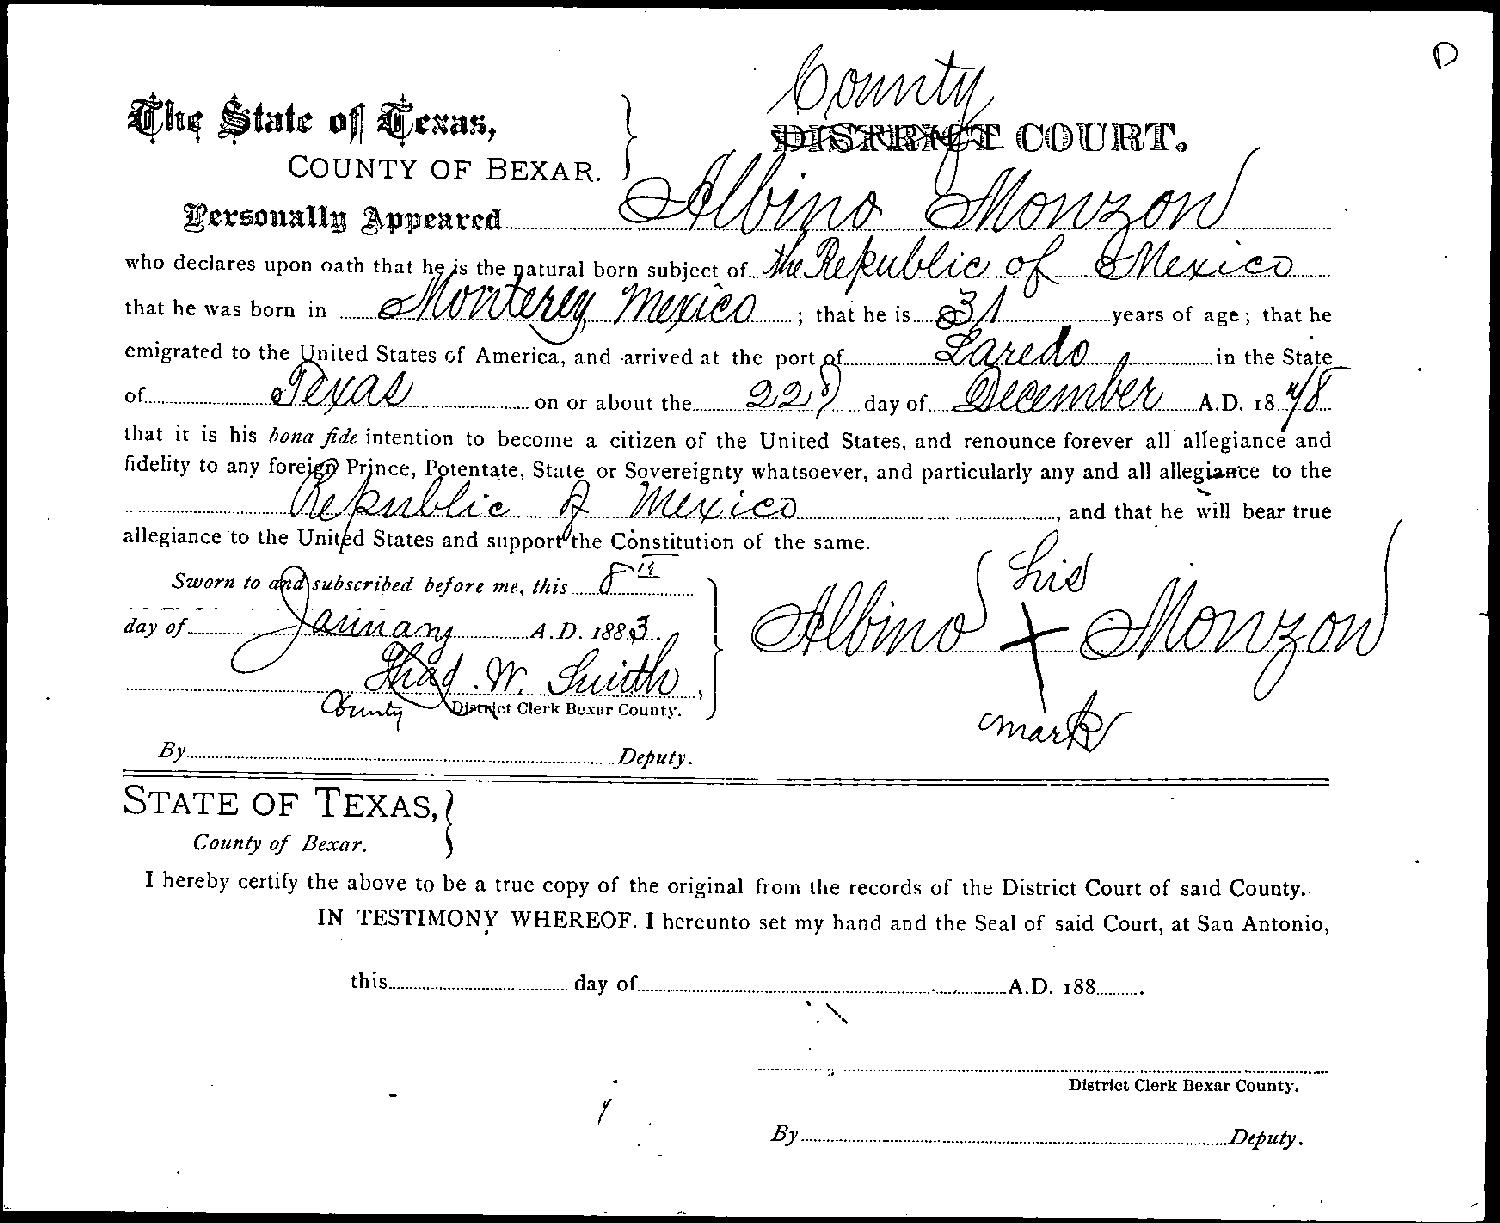 D
County
The State of Texas, } DISTRICT COURT.
COUNTY OF BEXAR.
Personally Appeared Albino Monzon
who declares upon oath that he is the natural born subject of the Republic of Mexico
that he was born in Monterey Mexico ; that he is 31 years of age; that he
emigrated to the United States of America, and arrived at the port of Laredo in the State
of Texas on or about the 22 day of December A.D. 18
that it is his bona fide intention to become a citizen of the United States, and renounce forever all allegiance and
fidelity to any foreign Prince, Potentate, State or Sovereignty whatsoever, and particularly any and all allegiance to the
Republic of Mexico , and that he will bear true
allegiance to the United States and support the Constitution of the same.
Sworn to and subscribed before me, this 8th
day of January A.D. 1883.
Thad. W. Smith
County District Clerk Bexar County.
By Deputy.
his
Albino X Monzon
mark
STATE OF TEXAS, }
County of Bexar.
I hereby certify the above to be a true copy of the original from the records of the District Court of said County.
IN TESTIMONY WHEREOF, I hereunto set my hand and the Seal of said Court, at San Antonio,
this day of A.D. 188 .
District Clerk Bexar County.
By Deputy.